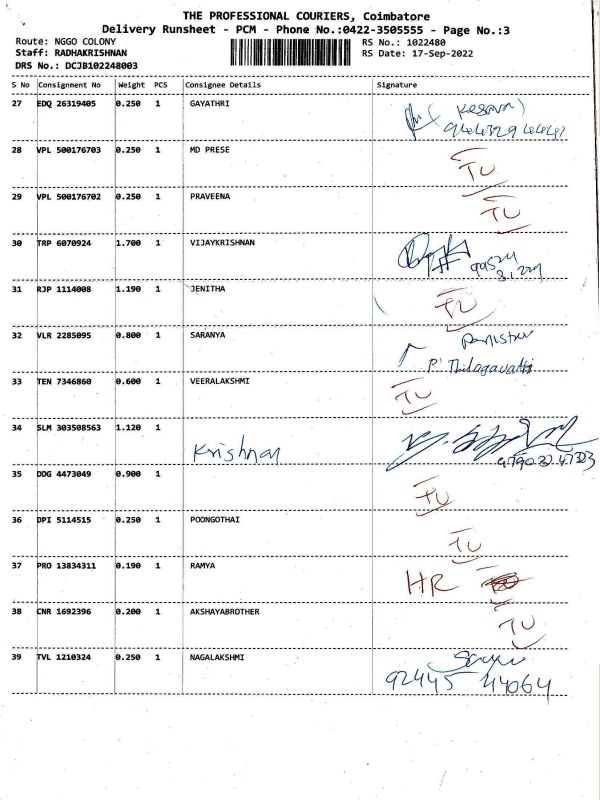 THE PROFESSIONAL COURIERS, Coimbatore
Delivery Runsheet - PCM - Phone No.:0422-3505555 - Page No.:3
Route: NGGO COLONY RS No.: 1022480
Staff: RADHAKRISHNAN RS Date: 17-Sep-2022
DRS No.: DCJB102248003
S No Consignment No Weight PCS Consignee Details Signature
27 EDQ 26319405 0.250 1 GAYATHRI
28 VPL 500176703 0.250 1 MD PRESE TU
29 VPL 500176702 0.250 1 PRAVEENA TU
30 TRP 6070924 1.700 1 VIJAYKRISHNAN
31 RJP 1114008 1.190 1 JENITHA TU
32 VLR 2285095 0.800 1 SARANYA
P' Thilagavathi
33 TEN 7346860 0.600 1 VEERALAKSHMI TU
34 SLM 303508563 1.120 1 Krishnan
35 DDG 4473049 0.900 1 TU
36 DPI 5114515 0.250 1 POONGOTHAI TU
37 PRO 13834311 0.190 1 RAMYA HR
38 CNR 1692396 0.200 1 AKSHAYABROTHER TU
39 TVL 1210324 0.250 1 NAGALAKSHMI
92445 44064